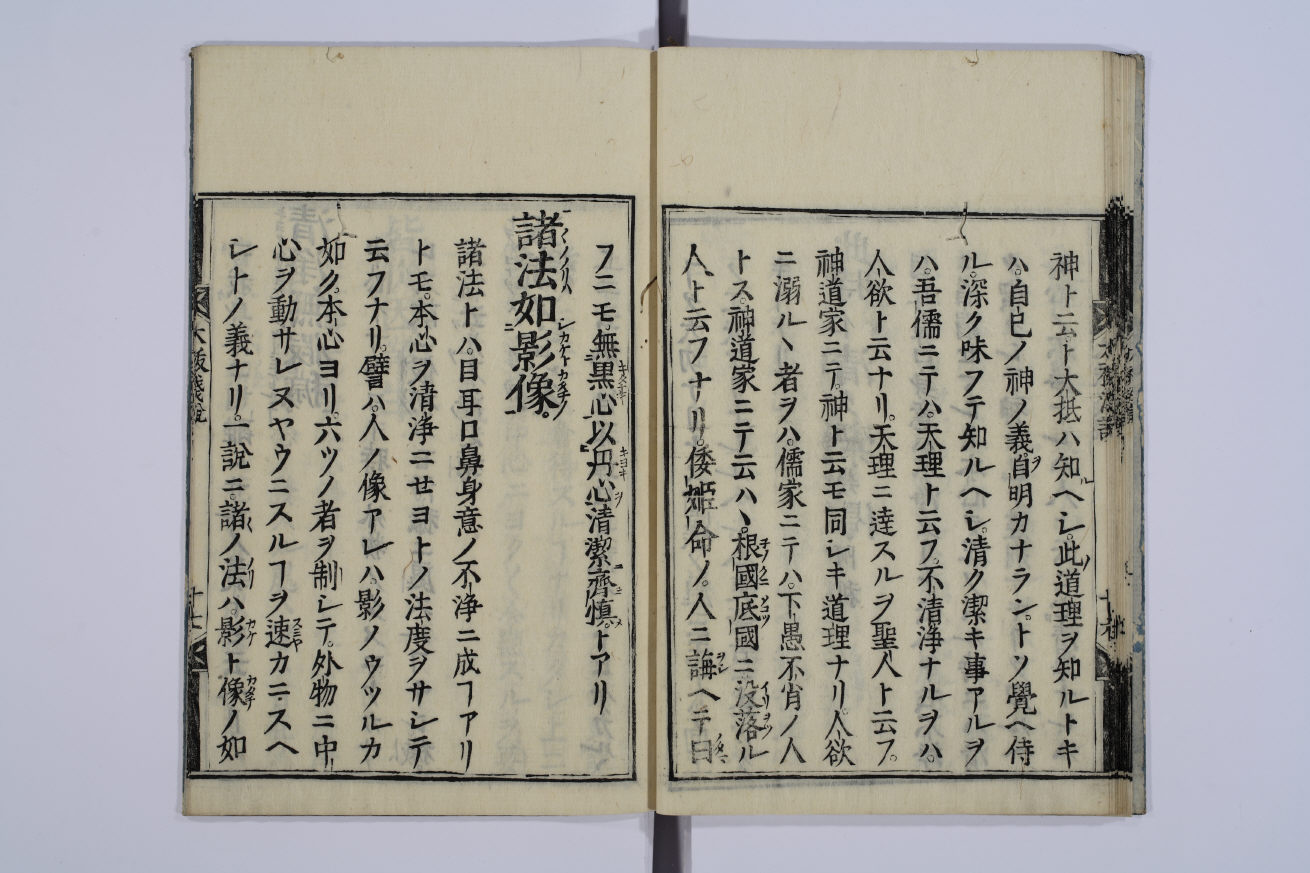 神ト云ト大抵ハ知ヘシ。此道理ヲ知ルトキ
ハ。自己ノ神ノ義。自明カナラン。トソ覺ヘ侍
ル。深ク味フテ知ルヘシ。清ク潔キ事アルヲ
ハ。吾儒ニテハ。天理ト云フ。不清浄ナルヲハ。
人欲ト云ナリ。天理ニ達スルヲ聖人ト云フ。
神道家ニテ。神ト云モ同シキ道理ナリ。人欲
ニ溺ルヽ者ヲハ。儒家ニテハ。下愚不肖ノ人
トス。神道家ニテ云ハヽ。根國底國ニ没落ル
人ト云フナリ。倭姫命ノ。人ニ誨ヘテ曰
フニモ。無黒心以丹心清潔齊慎。トアリ
諸法如影像。
諸法トハ。目耳口鼻身意ノ不浄ニ成ヿアリ
トモ。本心ヲ清浄ニせヨトノ法度ヲサシテ
云フナリ。譬ハ。人ノ像アレハ。影ノウツルカ
如ク。本心ヨリ。六ツノ者ヲ制シテ。外物ニ中
心ヲ動サレヌヤウニスルヿヲ速カニスヘ
シトノ義ナリ。一說ニ。諸ノ法ハ。影ト像ノ如